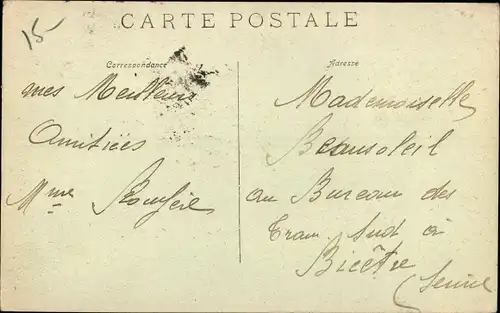 15
CARTE POSTALE
Correspondance
Adresse
mes Meilleurs
Amitiées
Mme
Mademoiselle
Beausoleil
au Bureau des
Tram Sud à
Bicêtre
(Seine